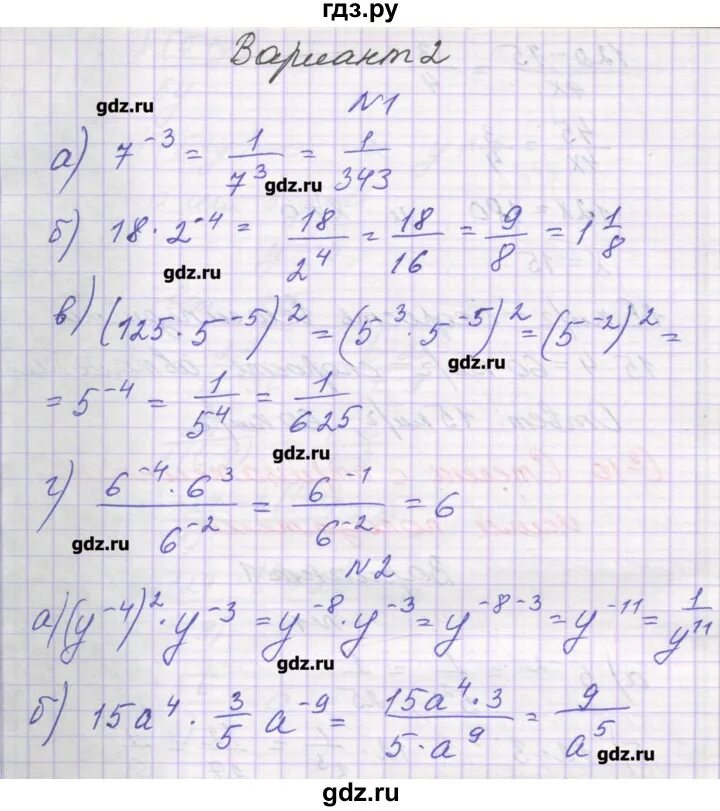 гдз.ру
Вариант 2
gdz.ru
№1
а) 7^-3 = 1/7^3 = 1/343
gdz.ru
б) 18 · 2^-4 = 18/2^4 = 18/16 = 9/8 = 1 1/8
gdz.ru
в) (125 · 5^-5)^2 = (5^3 · 5^-5)^2 = (5^-2)^2 =
gdz.ru
= 5^-4 = 1/5^4 = 1/625
gdz.ru
г) (6^-4 · 6^3)/6^-2 = 6^-1/6^-2 = 6
gdz.ru
№2
а) (y^-4)^2 · y^-3 = y^-8 · y^-3 = y^-8-3 = y^-11 = 1/y^11
gdz.ru
б) 15a^4 · 3/5 a^-9 = (15a^4 · 3)/(5 · a^9) = 9/a^5
gdz.ru
gdz.ru